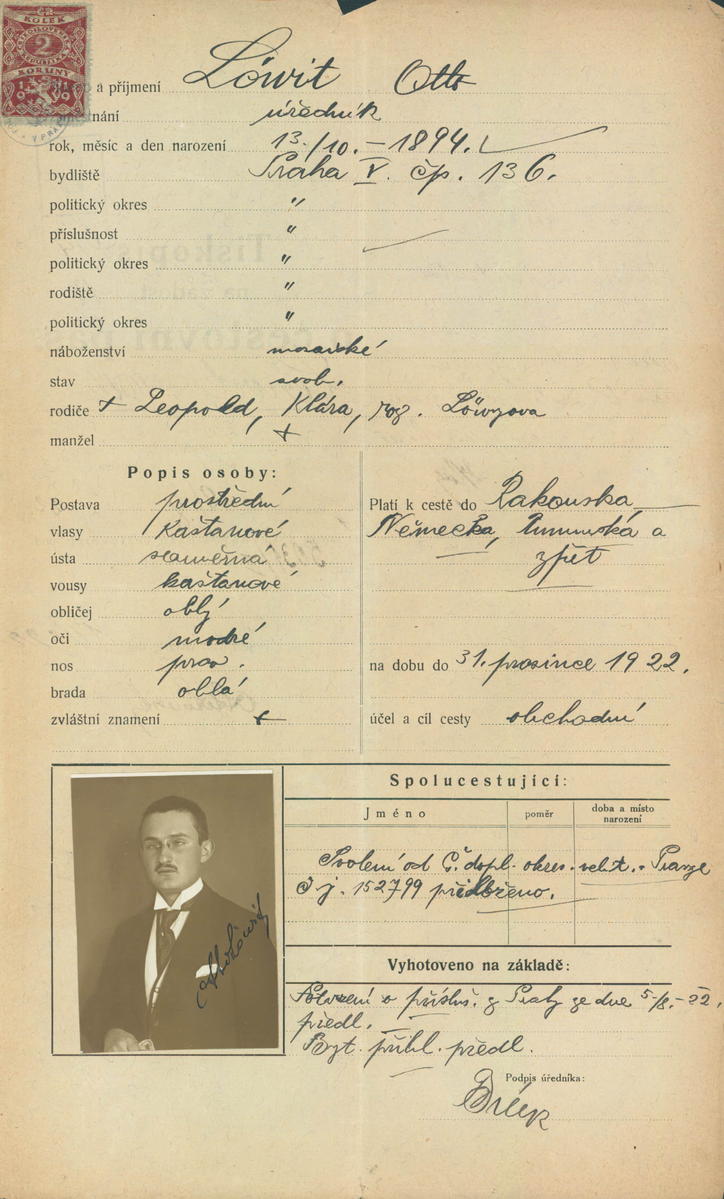 KOLEK
2
KORUNY
a příjmení Löwit Otto
úředník
rok, měsíc a den narození 13./10. – 1894.
bydliště Praha V. čp. 136.
politický okres "
příslušnost "
politický okres "
rodiště "
politický okres "
náboženství mosaiské
stav svob.
rodiče + Leopold, Klára, roz. Löwyova
manžel +
Popis osoby:
Postava prostřední
vlasy kaštanové
ústa souměrná
vousy kaštanové
obličej oblý
oči modré
nos prav.
brada oblá
zvláštní znamení +
Platí k cestě do Rakouska,
Německa, Rumunska a
zpět
na dobu do 31. prosince 1922.
účel a cíl cesty obchodní
Spolucestující:
Jméno poměr doba a místo narození
Svolení od dopl. okres. velit. Praze
j. 152799 předloženo.
Vyhotoveno na základě:
Potvrzení o přísluš. z Prahy ze dne 5./8. – 22.
předl.
přihl. předl.
Podpis úředníka: